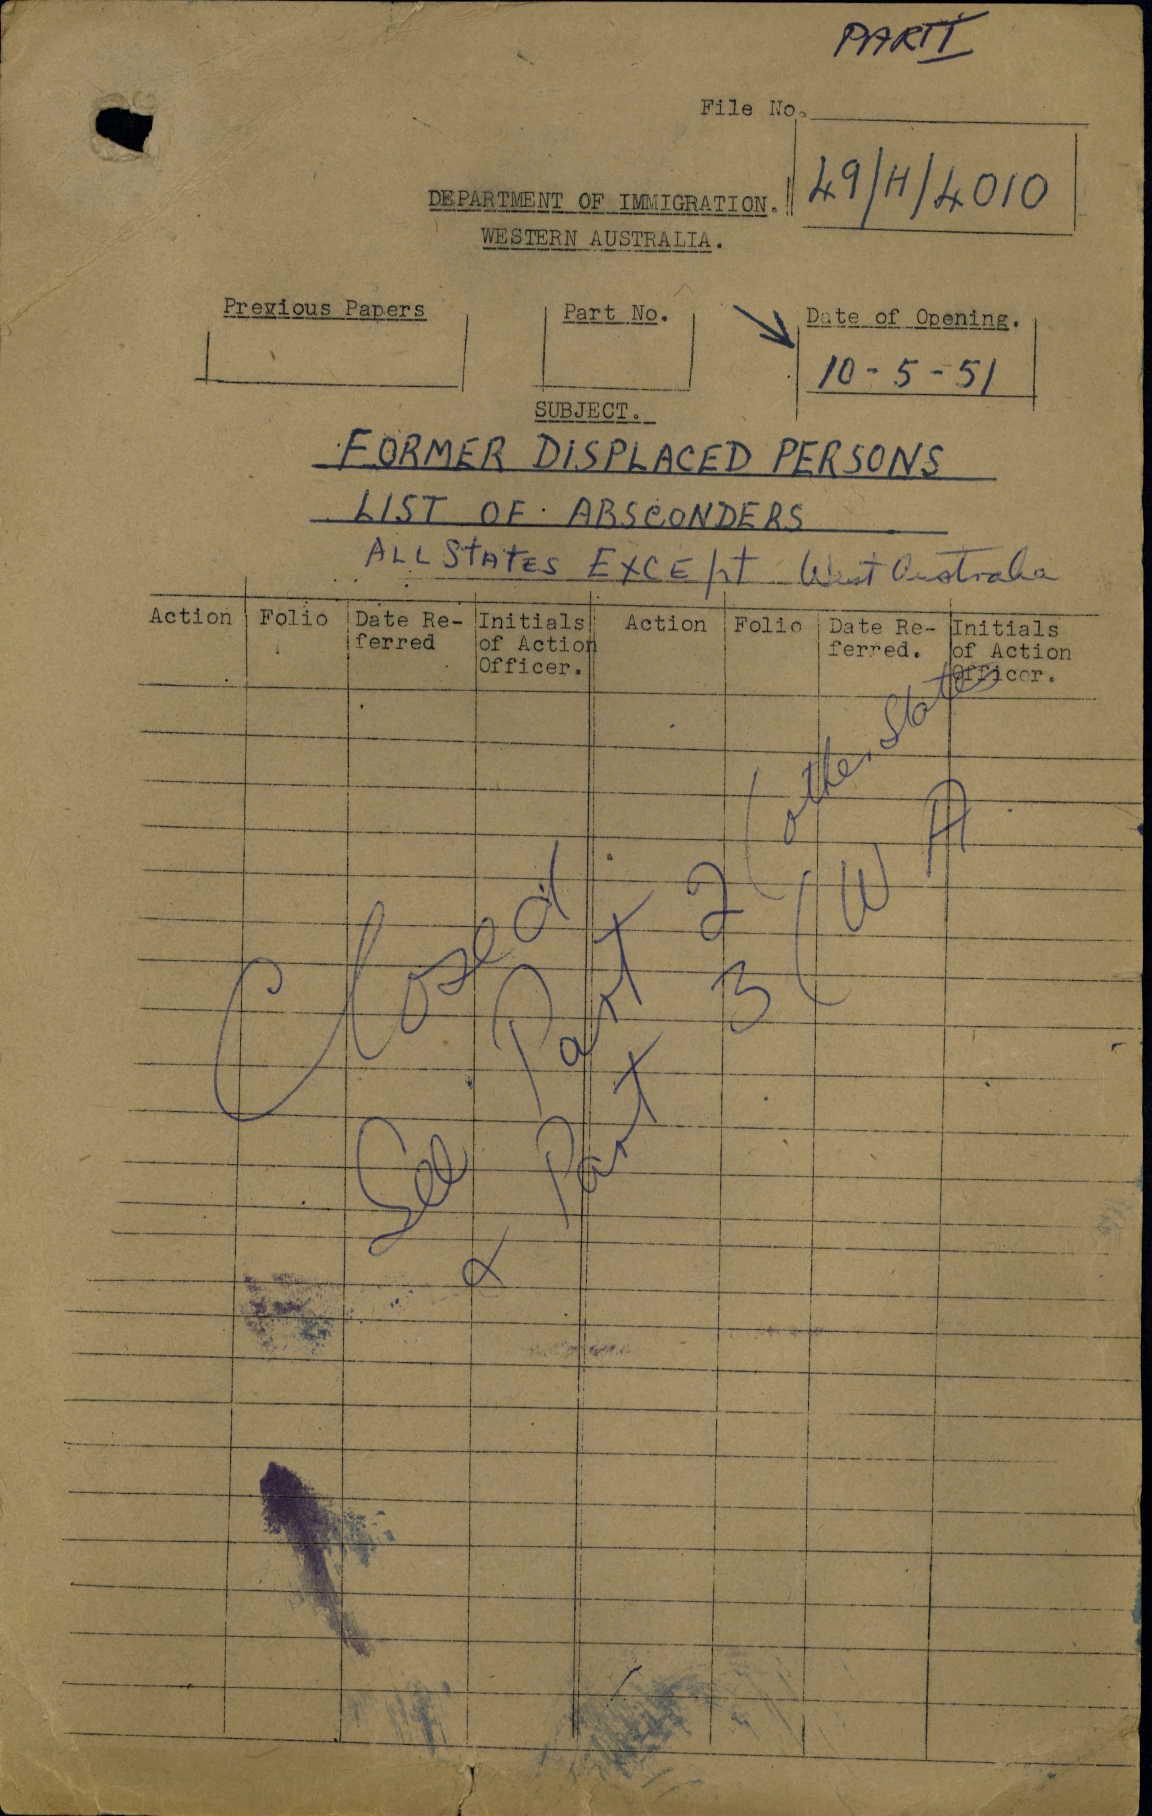 PART I
File No.
49/H/4010
DEPARTMENT OF IMMIGRATION.
WESTERN AUSTRALIA.
Previous Papers
Part No.
Date of Opening.
10-5-51
SUBJECT.
FORMER DISPLACED PERSONS
LIST OF ABSCONDERS
ALL STATES EXCEPT West Australia
Action Folio Date Re- Initials Action Folio Date Re- Initials
ferred of Action ferred. of Action
Officer. Officer.
Closed
See Part 2 (other States
& Part 3 (W A